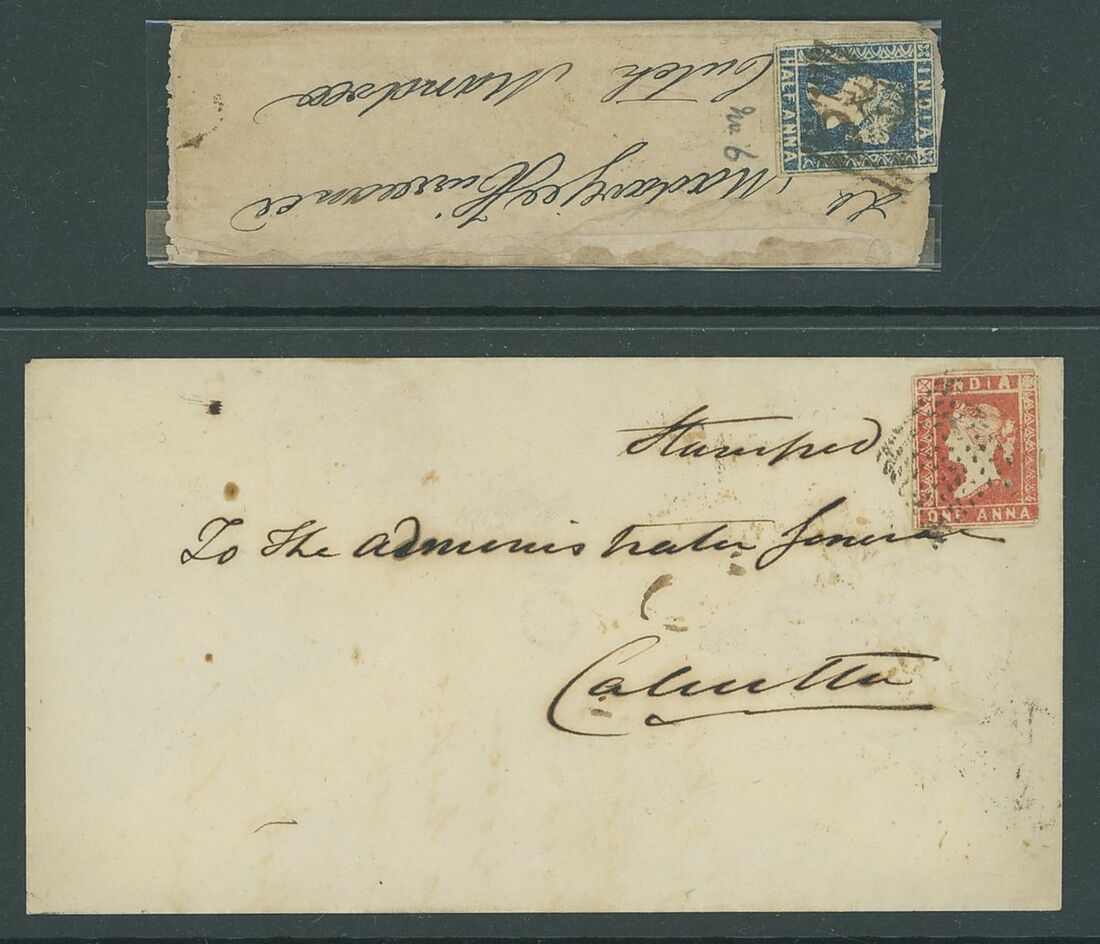 INDIA
HALF ANNA
No. 6
Cutch Mandvee
INDIA
Stamped
ONE ANNA
To The Administrator General
Calcutta